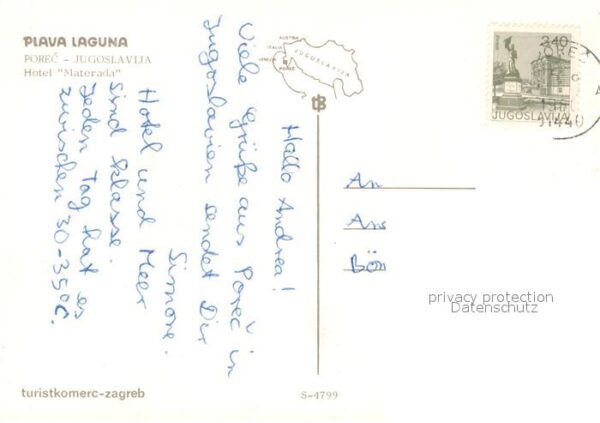 PLAVA LAGUNA
POREČ – JUGOSLAVIJA
Hotel "Materada"
AUSTRIA
ITALIA
JUGOSLAVIJA
POREČ
2.40
JUGOSLAVIJA
51440
Hallo Andrea!
Viele Grüße aus Poreč in
Jugoslavien sendet Dir
Simone.
Hotel und Meer
sind klasse.
Jeden Tag hat es
zwischen 30-35°C.
An
An
Bön
privacy protection
Datenschutz
turistkomerc-zagreb
S-4799